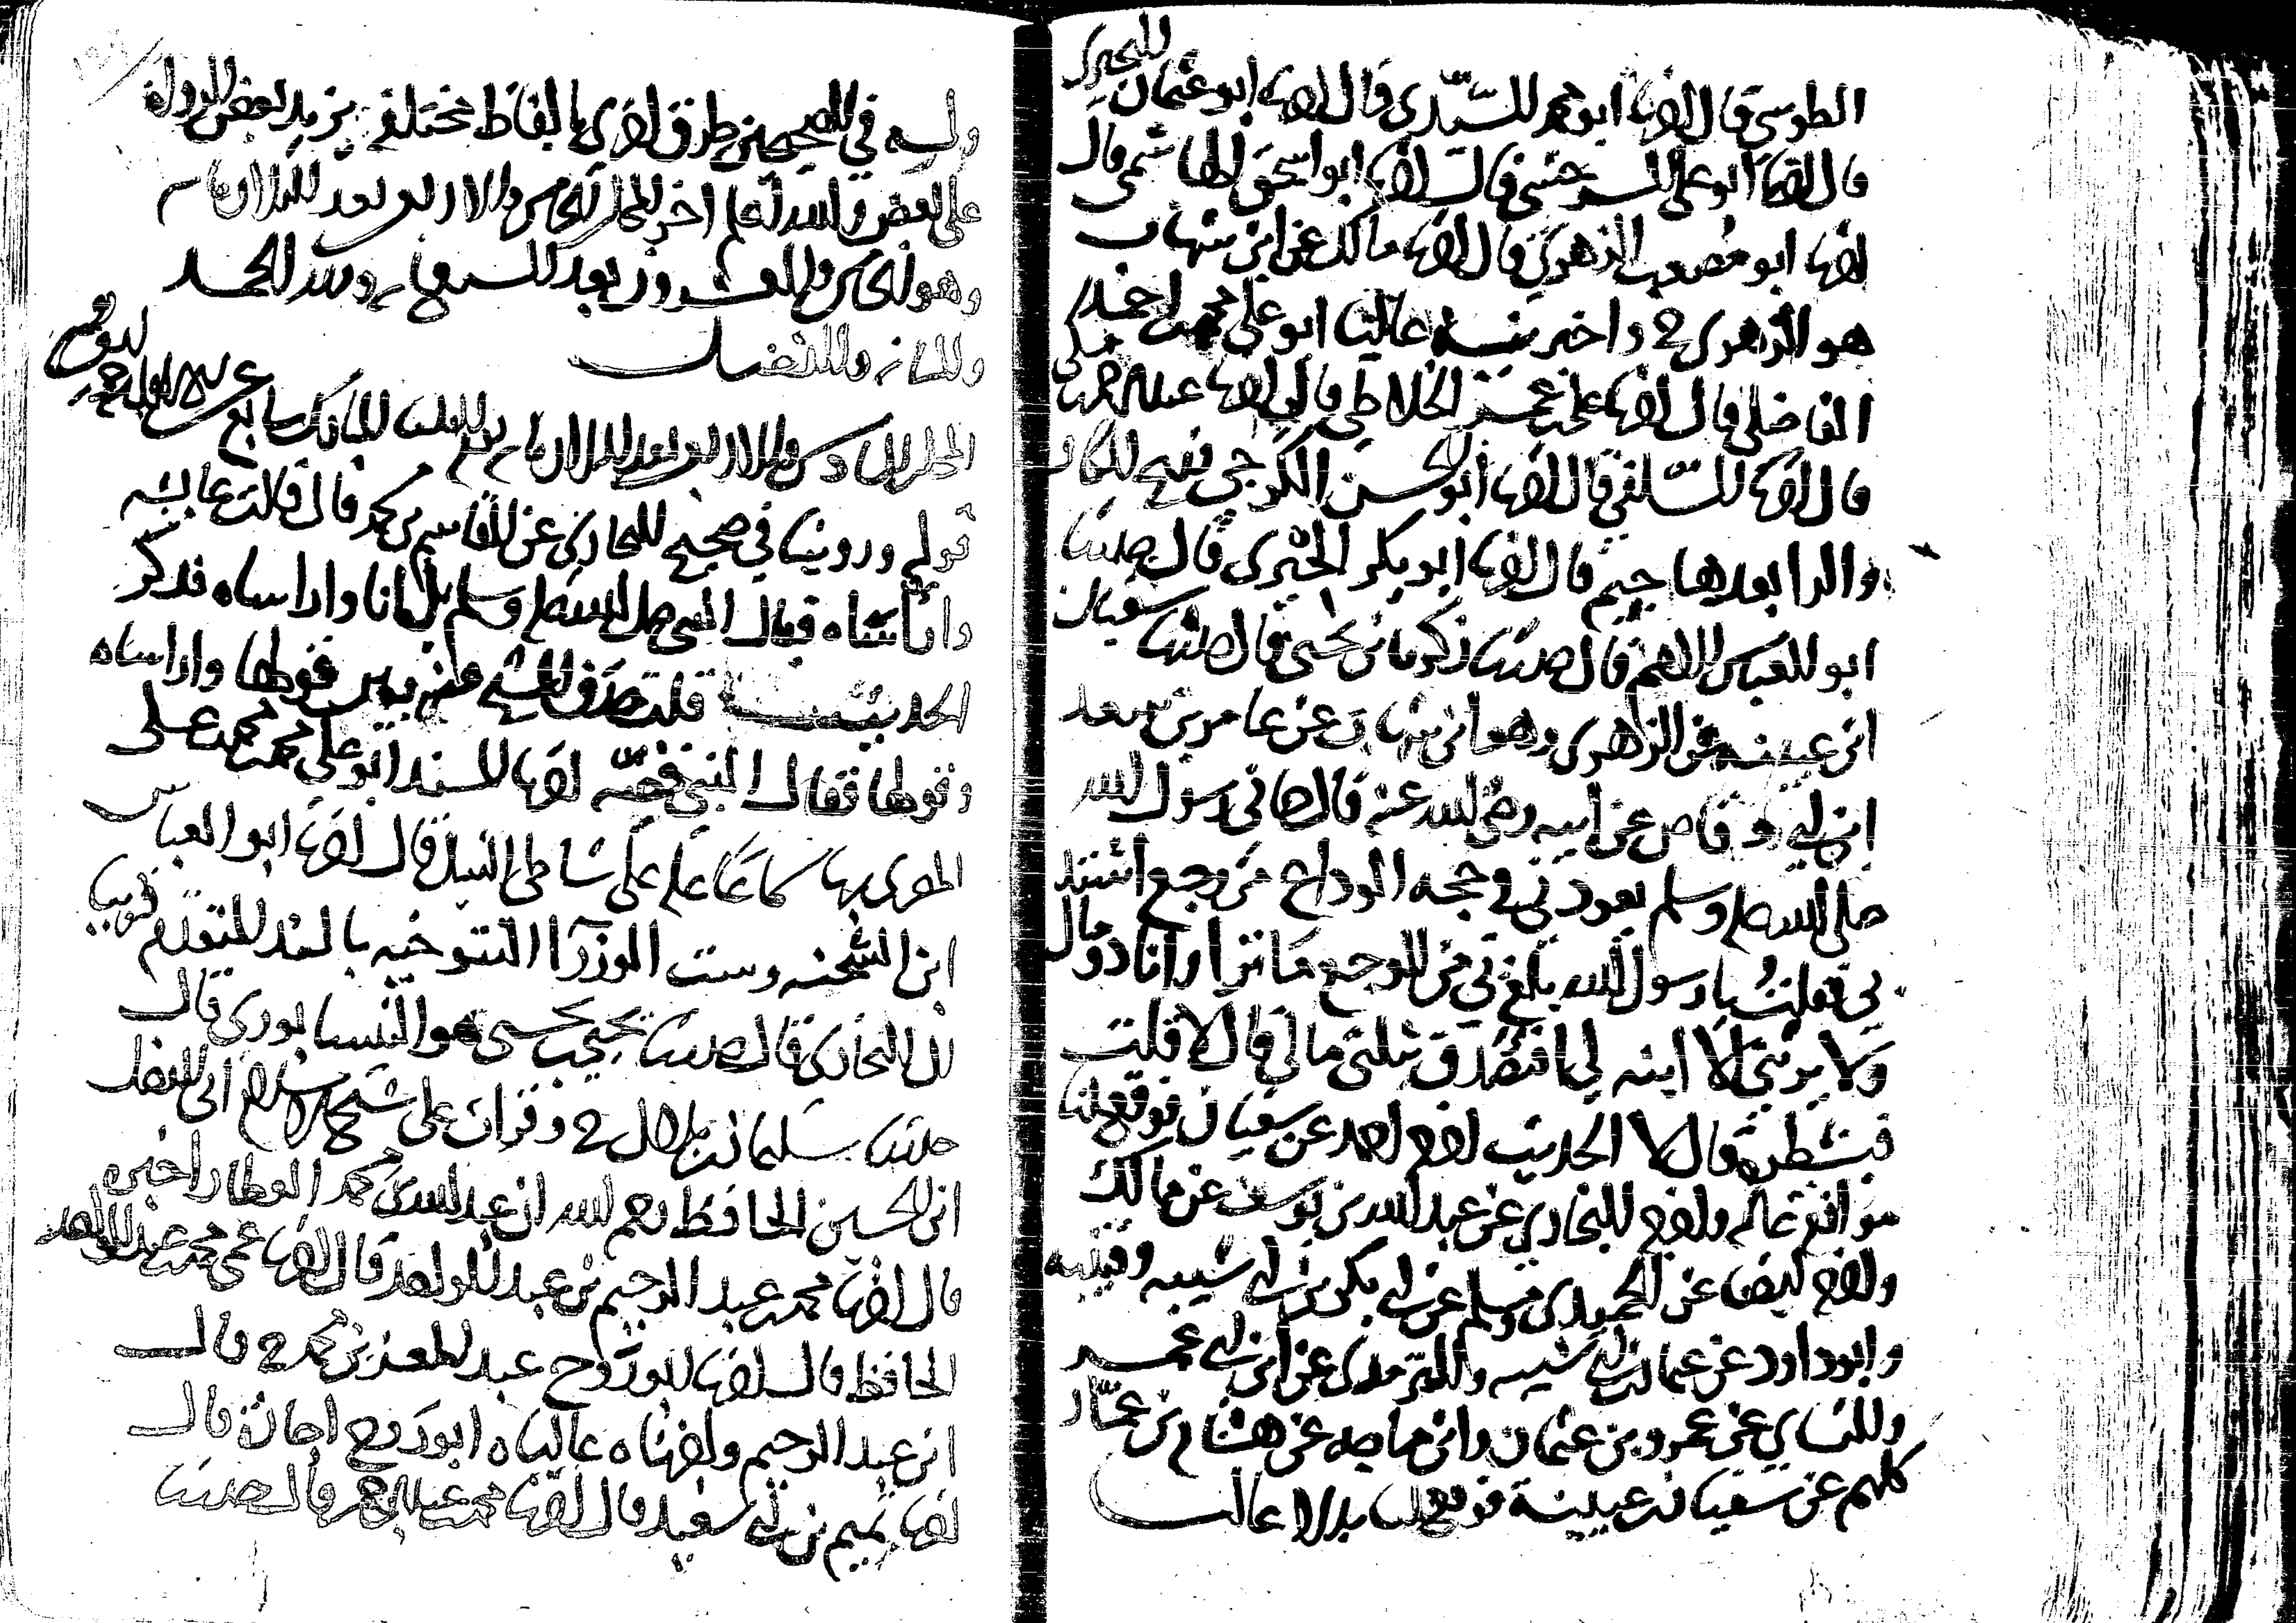 الطوسي قال اخبرنا ابو محمد السيدي قال اخبرنا ابو عثمان البحيري
قال اخبرنا ابو علي السرخسي قال اخبرنا ابو اسحق الهاشمي قال
اخبرنا ابو مصعب الزهري قال اخبرنا مالك عن ابن شهاب
هو الزهري ح واخبرنيه عاليا ابو علي محمد بن احمد
الفاضلي قال اخبرنا علي بن عمر الخلاطي قال اخبرنا عبد الرحمن بن مكي
قال اخبرنا السلفي قال اخبرنا ابو الحسن الكرجي بفتح الكاف
والرا بعدها جيم قال اخبرنا ابو بكر الحيري قال حدثنا
ابو العباس الاصم قال حدثنا زكريا بن يحيى قال حدثنا سفيان
ابن عيينه عن الزهري وهو ابن شهاب عن عامر بن سعد
ابن ابي وقاص عن ابيه رضي الله عنه قال جاني رسول الله
صلى الله عليه وسلم يعودني في حجه الوداع من وجع اشتد
بي فقلت يا رسول الله بلغ بي من الوجع ما ترا وانا ذو مال
ولا يرثني الا ابنه لي افاتصدق بثلثي مالي قال لا قلت
فبشطره قال لا الحديث اخرجه احمد عن سفيان فوقع لنا
موافقه عاليه واخرجه البخاري عن عبد الله بن يوسف عن مالك
واخرجه ايضا عن الحميدي ومسلم عن ابي بكر بن ابي شيبه وقتيبه
وابو داود عن عثمان بن ابي شيبه والترمذي عن ابن ابي عمر
والنساي عن عمرو بن عثمان وابن ماجه عن هشام بن عمار
كلهم عن سفيان بن عيينة فوقع لنا بدلا عاليا
وله في الصحيحين طرق اخرى بالفاظ مختلفة يزيد بعض الرواة
على بعض والله اعلم اخر المجلس الخامس والاربعين بعد الثلاثمايه
وهو الخامس والعشرون بعد السبعمايه ولله الحمد

المجلس السادس والاربعون بعد الثلاثمايه
قوله وروينا في صحيح البخاري عن القاسم بن محمد قال قالت عائشه
واراساه فقال النبي صلى الله عليه وسلم بل انا واراساه فذكر
الحديث قلت حذف الشيخ منه بين قولها واراساه
وقولها فقال النبي قصه اخبرنا المسند ابو علي محمد بن محمد بن علي
سماعا عليه على شاطئ النيل قال اخبرنا ابو العباس
ابن الشحنه وست الوزرا التنوخيه بالسند المتقدم قريبا
الى البخاري قال حدثنا يحيى بن يحيى هو النيسابوري قال
حدثنا سليمان بن بلال ح وقرات على شيخ الاسلام ابي الفضل
ابن الحسين الحافظ رحمه الله ان عبد الله بن محمد العطار اخبره
قال اخبرنا محمد بن عبد الرحيم بن عبد الواحد قال اخبرنا عمي محمد بن عبد الواحد
الحافظ قال اخبرنا ابو روح عبد المعز بن محمد ح قال
ابن عبد الرحيم واخبرناه عاليا ابو روح اجازة قال
اخبرنا تميم بن ابي سعيد قال اخبرنا محمد بن عبد الرحمن قال حدثنا